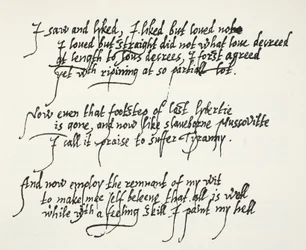 I saw and liked, I liked but loued not
I loued but straight did not what loue decreed
at length to loues decrees, I forst agreed
yet with repining at so partiall lot.
Now even that footstep of lost libertie
is gone, and now like slaueborne Muscovitte
I call it praise to suffer Tyranny.
And now employ the remnant of my wit
to make me self beleeue that all is well
while with a feeling skill I paint my hell